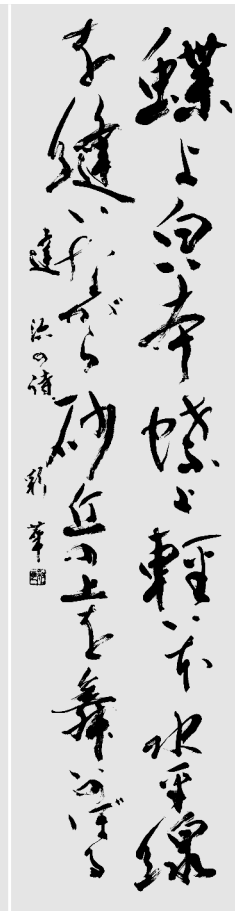 蝶よ 白い本 蝶よ 軽い本 水平線
を縫いながら 砂丘の上を舞いのぼる
達治の詩 彩華